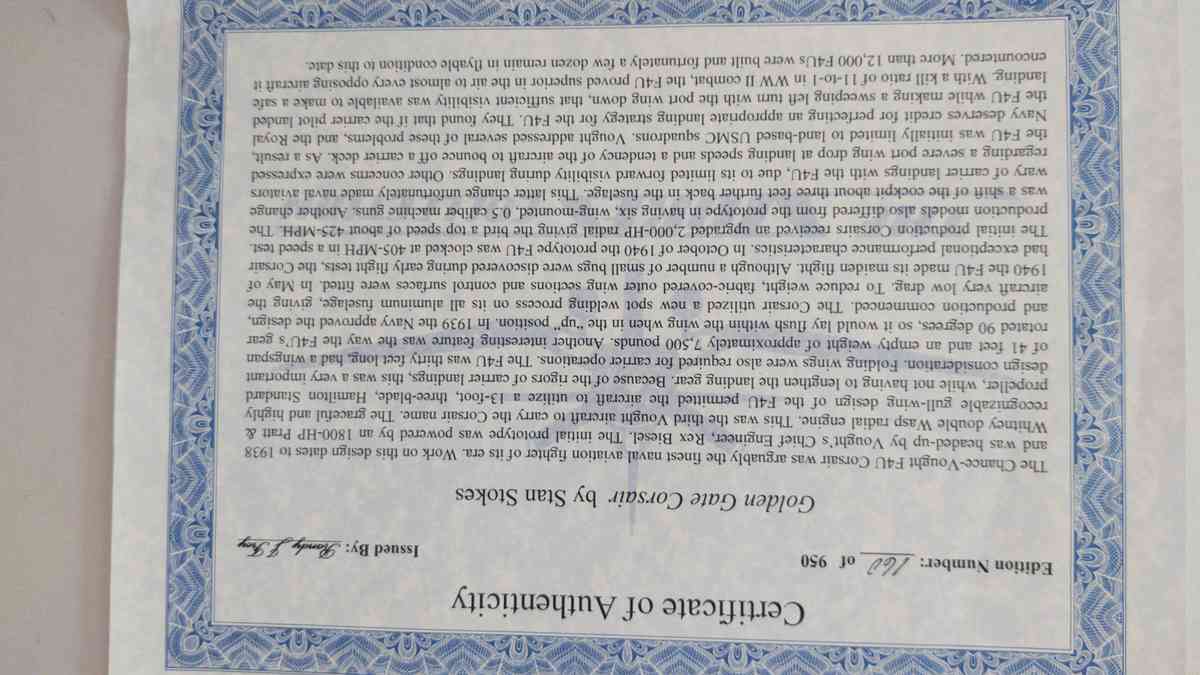 Certificate of Authenticity
Edition Number: 160 of 950 Issued By: Randy L Troy
Golden Gate Corsair by Stan Stokes
The Chance-Vought F4U Corsair was arguably the finest naval aviation fighter of its era. Work on this design dates to 1938
and was headed-up by Vought's Chief Engineer, Rex Biesel. The initial prototype was powered by an 1800-HP Pratt &
Whitney double Wasp radial engine. This was the third Vought aircraft to carry the Corsair name. The graceful and highly
recognizable gull-wing design of the F4U permitted the aircraft to utilize a 13-foot, three-blade, Hamilton Standard
propeller, while not having to lengthen the landing gear. Because of the rigors of carrier landings, this was a very important
design consideration. Folding wings were also required for carrier operations. The F4U was thirty feet long, had a wingspan
of 41 feet and an empty weight of approximately 7,500 pounds. Another interesting feature was the way the F4U's gear
rotated 90 degrees, so it would lay flush within the wing when in the "up" position. In 1939 the Navy approved the design,
and production commenced. The Corsair utilized a new spot welding process on its all aluminum fuselage, giving the
aircraft very low drag. To reduce weight, fabric-covered outer wing sections and control surfaces were fitted. In May of
1940 the F4U made its maiden flight. Although a number of small bugs were discovered during early flight tests, the Corsair
had exceptional performance characteristics. In October of 1940 the prototype F4U was clocked at 405-MPH in a speed test.
The initial production Corsairs received an upgraded 2,000-HP radial giving the bird a top speed of about 425-MPH. The
production models also differed from the prototype in having six, wing-mounted, 0.5 caliber machine guns. Another change
was a shift of the cockpit about three feet further back in the fuselage. This latter change unfortunately made naval aviators
wary of carrier landings with the F4U, due to its limited forward visibility during landings. Other concerns were expressed
regarding a severe port wing drop at landing speeds and a tendency of the aircraft to bounce off a carrier deck. As a result,
the F4U was initially limited to land-based USMC squadrons. Vought addressed several of these problems, and the Royal
Navy deserves credit for perfecting an appropriate landing strategy for the F4U. They found that if the carrier pilot landed
the F4U while making a sweeping left turn with the port wing down, that sufficient visibility was available to make a safe
landing. With a kill ratio of 11-to-1 in WW II combat, the F4U proved superior in the air to almost every opposing aircraft it
encountered. More than 12,000 F4Us were built and fortunately a few dozen remain in flyable condition to this date.